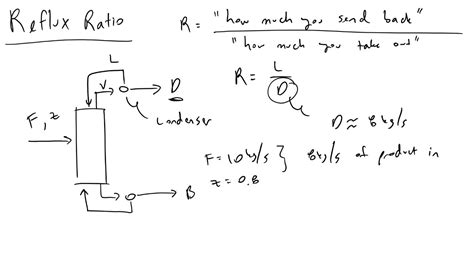 Reflux Ratio
R = "how much you send back"
"how much you take out"
L
V
D
R = L
D
Condenser
F, z
D ≈ 8 kg/s
F = 10 kg/s } 8 kg/s of product in
z = 0.8
B